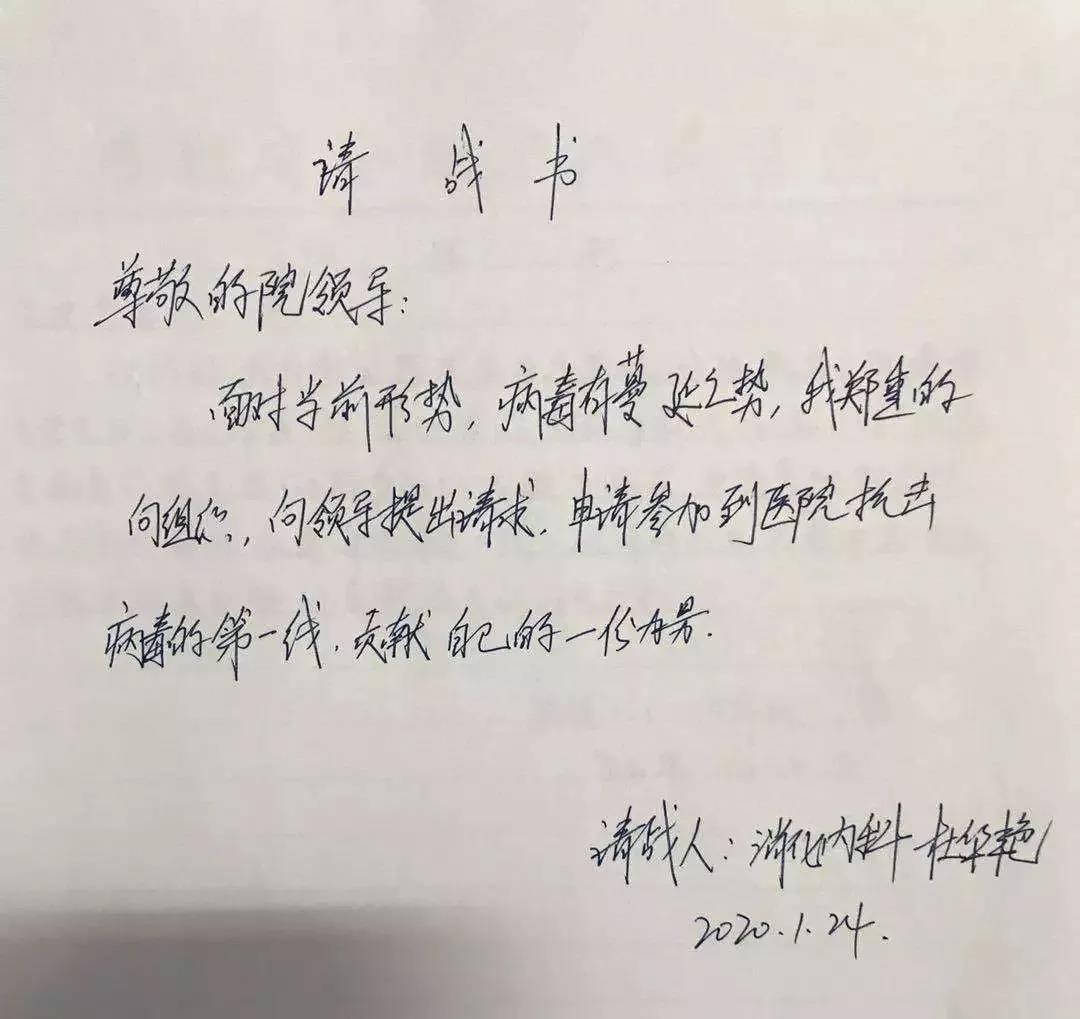 请战书
尊敬的院领导:
面对当前形势,病毒有蔓延之势,我郑重的
向组织,向领导提出请求,申请参加到医院抗击
病毒的第一线,贡献自己的一份力量.
请战人:消化内科 杜华艳
2020.1.24.